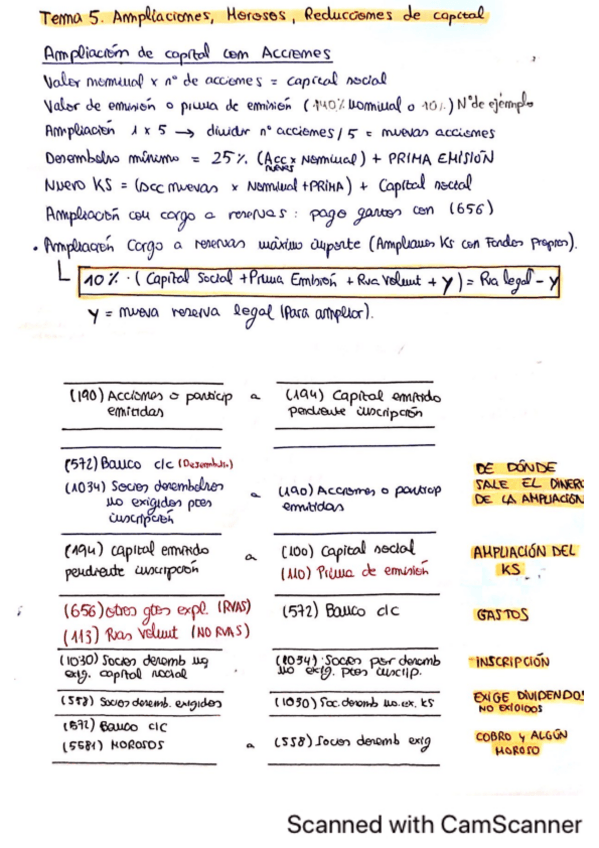 Tema 5. Ampliaciones, Morosos, Reducciones de capital
Ampliación de capital con Acciones
Valor nominal x nº de acciones = capital social
Valor de emisión o prima de emisión (140% nominal o 10%) Nº de ejemplo
Ampliación 1 x 5 → dividir nº acciones / 5 = nuevas acciones
Desembolso mínimo = 25% (Acc x Nominal) + PRIMA EMISIÓN
nuevas
Nuevo KS = (Acc nuevas x Nominal + PRIMA) + Capital social
Ampliación con cargo a reservas: pago gastos con (656)
• Ampliación cargo a reservas máximo importe (Ampliamos Ks con Fondos Propios).
10% · (Capital Social + Prima Emisión + Rva Volunt + y) = Rva legal - y
y = nueva reserva legal (para ampliar).
(190) Acciones o particip a (194) Capital emitido
emitidas pendiente inscripción
(572) Banco c/c (Desembols.)
(1034) Socios desembolsos
no exigidos ptes
inscripción
a (190) Acciones o particip
emitidas
DE DÓNDE
SALE EL DINERO
DE LA AMPLIACIÓN
(194) Capital emitido a (100) Capital social
pendiente inscripción (110) Prima de emisión
AMPLIACIÓN DEL
KS
(656) otros gtos expl. (RVAS) (572) Banco c/c
(113) Rvas Volunt (NO RVAS)
GASTOS
(1030) Socios desemb no (1034) Socios por desemb
exig. capital social no exig. ptes inscrip.
INSCRIPCIÓN
(558) Socios desemb. exigidos (1030) Soc. desemb no. ex. KS
EXIGE DIVIDENDOS
NO EXIGIDOS
(572) Banco c/c
(5581) MOROSOS a (558) Socios desemb exig
COBRO y ALGÚN
MOROSO
Scanned with CamScanner